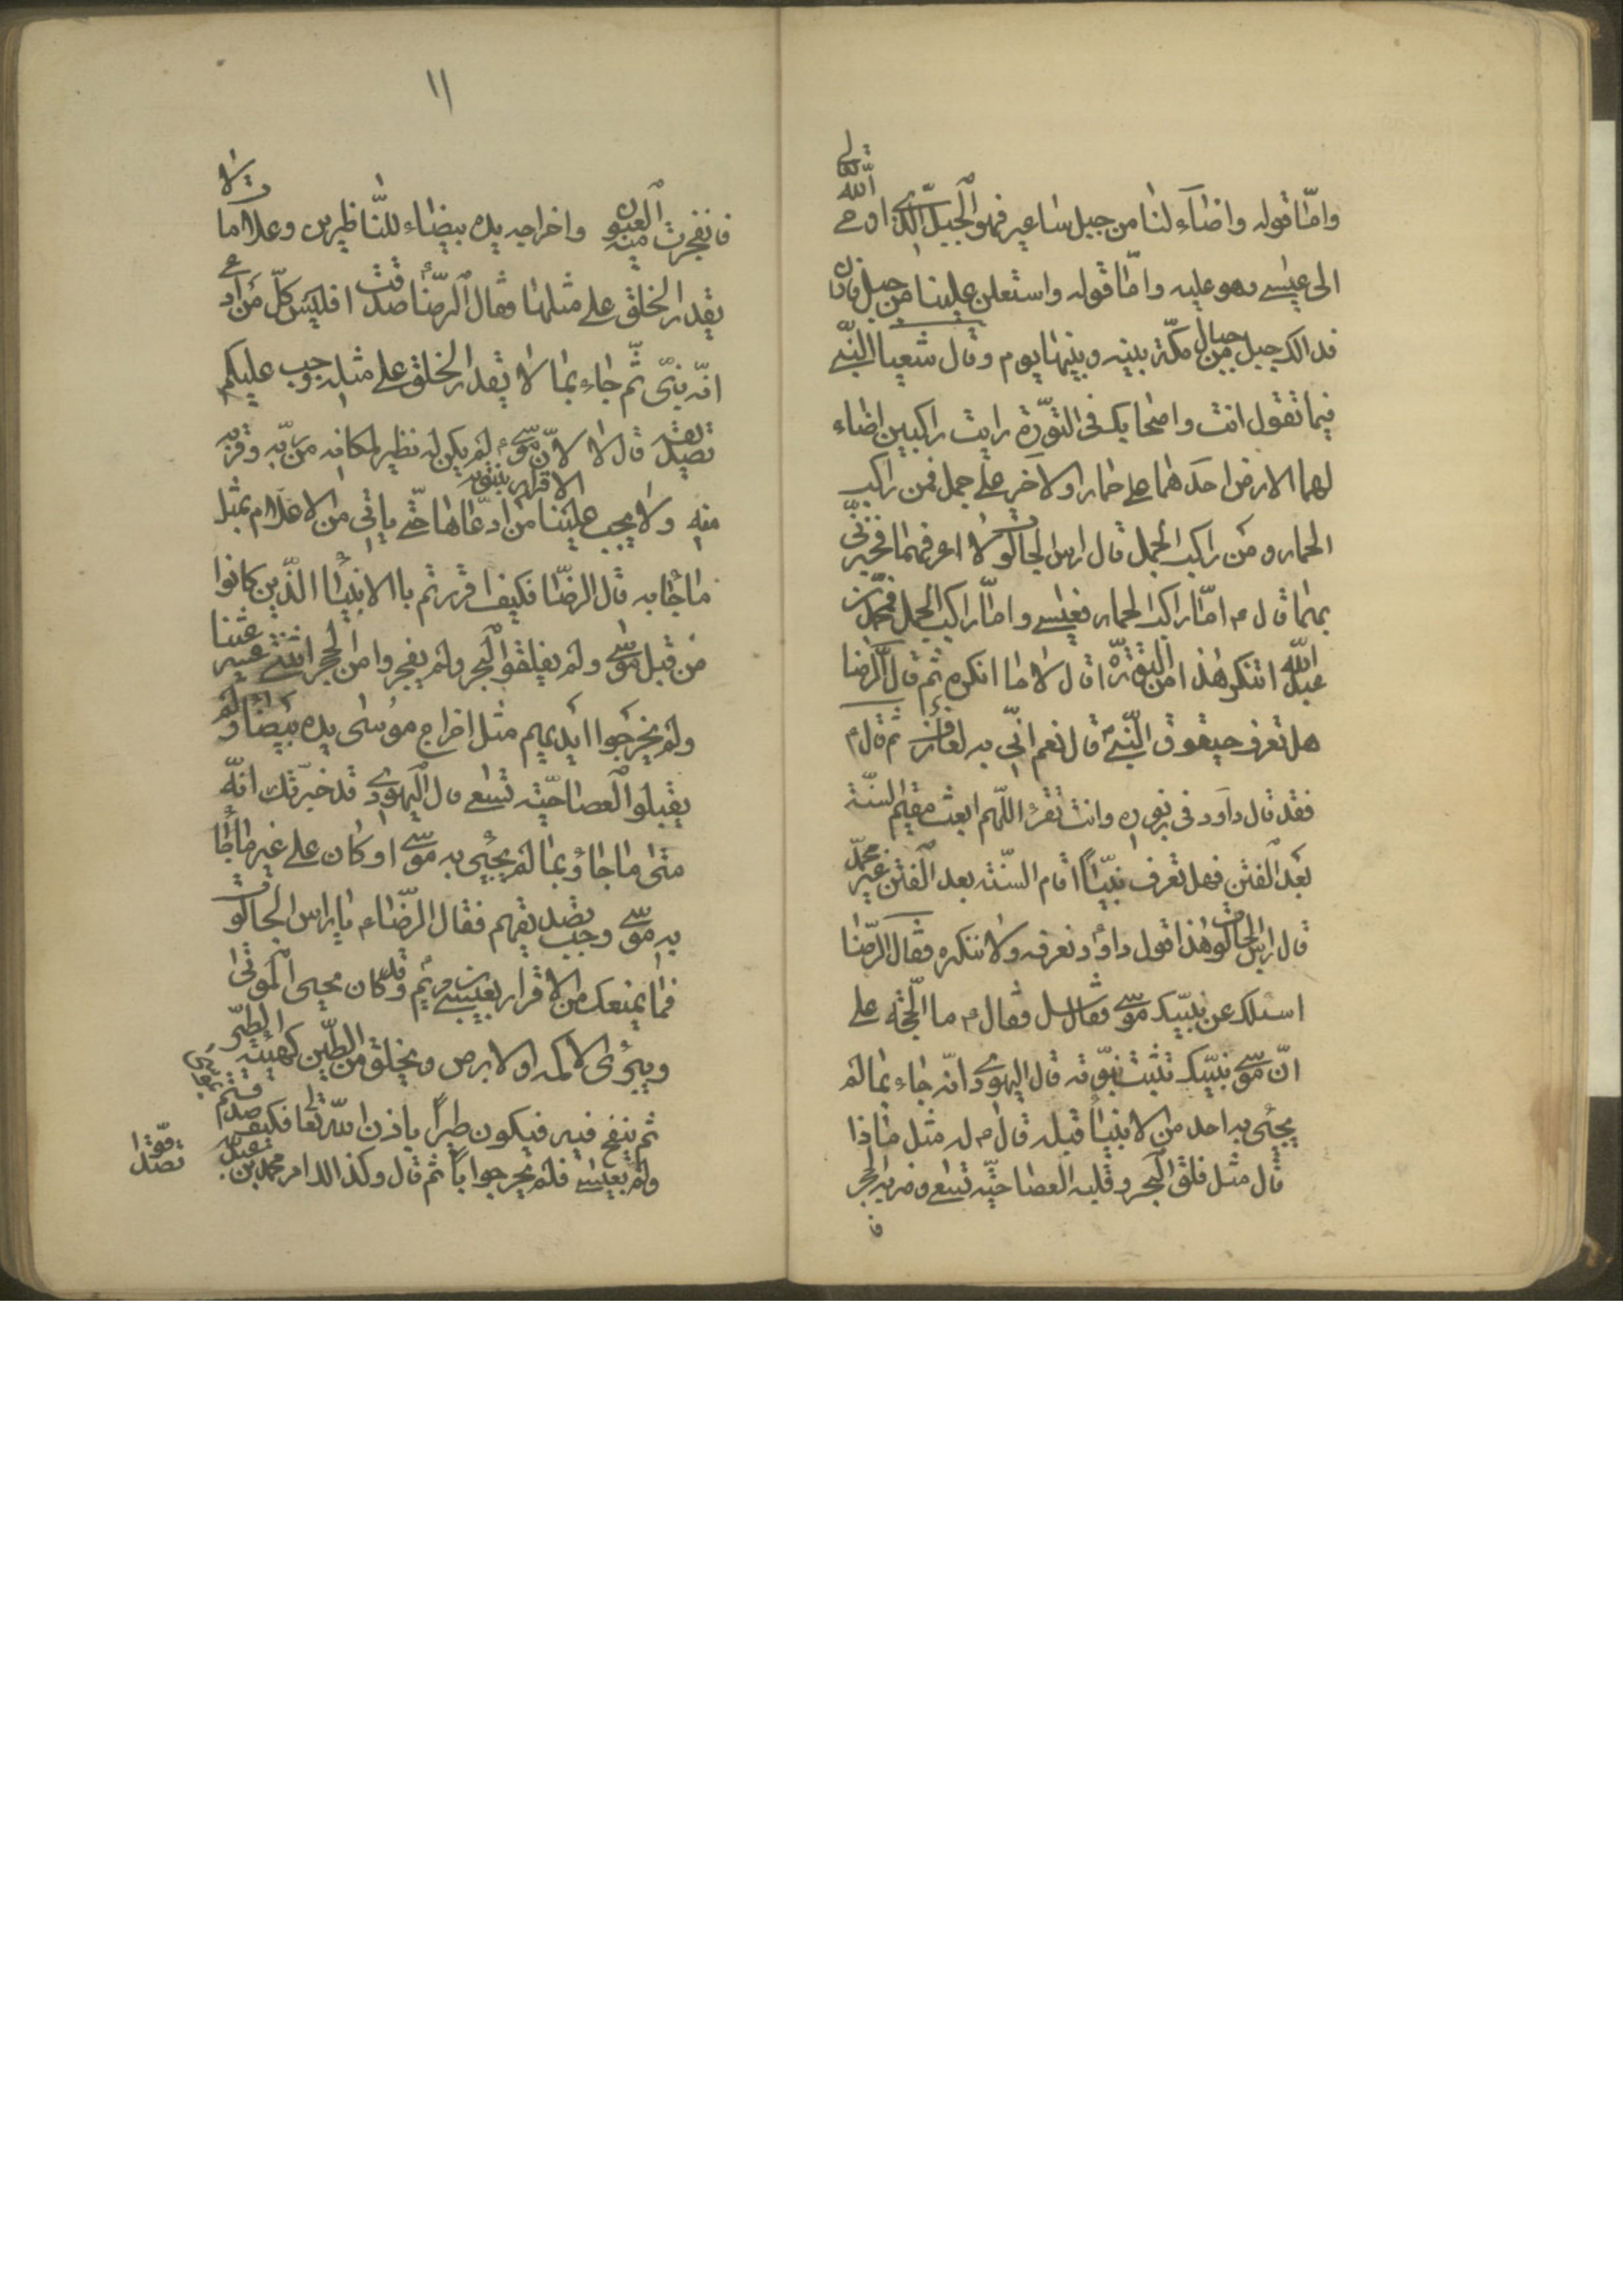 واما قوله واضاء لنا من جبل ساعير فهو الجبل الذي اوحى الله تعالى
الى عيسى وهو عليه واما قوله واستعلن علينا من جبل فاران
فذالك جبل من جبال مكة بينه وبينها يوم وقال شعيا النبي
فيما تقول انت واصحابك في التورة رايت راكبين اضاء
لهما الارض احدهما على حمار والاخر على جمل فمن راكب
الحمار ومن راكب الجمل قال راس الجالوت لا اعرفهما فخبرني
بهما قال ع اما راكب الحمار فعيسى واما راكب الجمل فمحمد بن
عبد الله اتنكر هذا من التورة قال لا ما انكره ثم قال الرضا
هل تعرف حيقوق النبي قال نعم اني به لعارف ثم قال ع
فقد قال داود في زبوره وانت تقرء اللهم ابعث مقيم السنة
بعد الفتن فهل تعرف نبيا اقام السنة بعد الفتن غير محمد
قال راس الجالوت هذا قول داود نعرفه ولا ننكره فقال الرضا
اسئلك عن نبيك موسى فقال سل فقال ع ما الحجة على
ان موسى نبيك تثبت نبوته قال اليهودي انه جاء بما لم
يجئى به احد من الانبياء قبله قال ع له مثل ماذا
قال مثل فلق البحر وقلبه العصا حية تسعى وضربه الحجر
ف
١١
فانفجرت منه العيون واخراجه يده بيضاء للناظرين وعلاما لا
يقدر الخلق على مثلها فقال الرضا صدقت افليس كل من ادعى
انه نبي ثم جاء بما لا يقدر الخلق على مثله وجب عليكم
تصديقه قال لا لان موسى لم يكن له نظير لمكانه من ربه وقربه
منه ولا يجب علينا الاقرار بنبوة من ادعاها حتى ياتي من الاعلام بمثل
ما جاء به قال الرضا فكيف اقررتم باالانبياء الذين كانوا
من قبل موسى ولم يفلقوا البحر ولم يفجروا من الحجر اثنتى عشر عينا
ولم يخرجوا ايديهم مثل اخراج موسى يده بيضاء ولم
يقبلوا العصا حية تسعى قال اليهودي قد خبرتك انه
متى ما جاؤ بما لم يجئى به موسى او كان على غير ما جاء
به موسى وجب تصديقهم فقال الرضا ع يا راس الجالوت
فما يمنعك من الاقرار بعيسى بن مريم وقد كان محيى الموتى
ويبرئ الاكمه والابرص ويخلق من الطين كهيئة الطير
ثم ينفخ فيه فيكون طيرا باذن الله تعا فكيف
ولم بعيسى فلم يحر جوابا ثم قال وكذالك امر محمد بن
تصدقوا